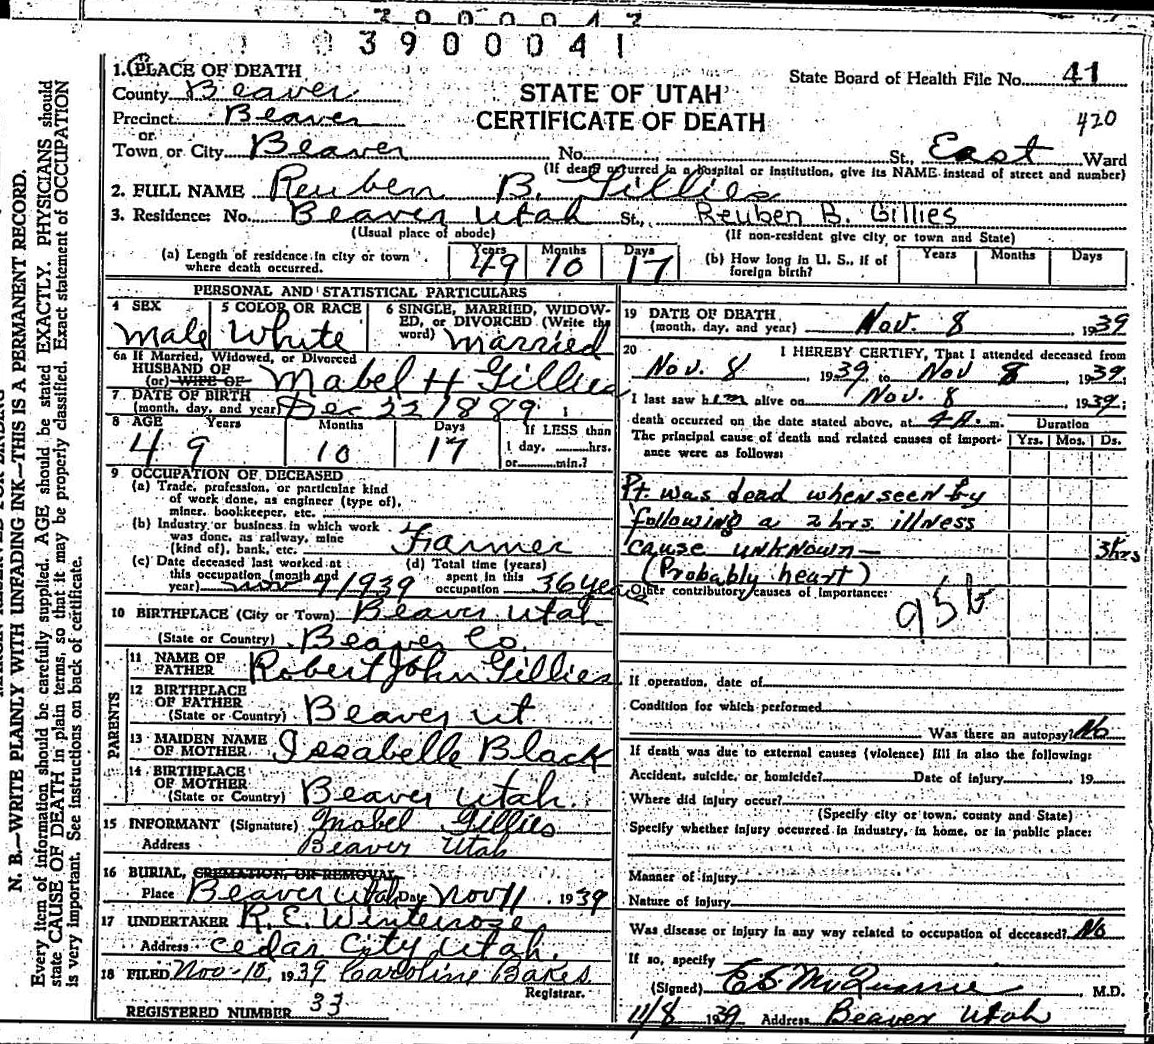 3900041
1. PLACE OF DEATH
County Beaver
Precinct Beaver
or
Town or City Beaver
STATE OF UTAH
CERTIFICATE OF DEATH
State Board of Health File No. 41
420
No. St., East Ward
(If death occurred in a hospital or institution, give its NAME instead of street and number)
2. FULL NAME Reuben B. Gillies
3. Residence: No. Beaver Utah St., Reuben B. Gillies
(Usual place of abode) (If non-resident give city or town and State)
(a) Length of residence in city or town where death occurred. Years 49 Months 10 Days 17
(b) How long in U. S., if of foreign birth? Years Months Days
PERSONAL AND STATISTICAL PARTICULARS
4 SEX Male
5 COLOR OR RACE White
6 SINGLE, MARRIED, WIDOWED, or DIVORCED (Write the word) Married
6a If Married, Widowed, or Divorced
HUSBAND OF
(or) WIFE OF Mabel H Gillies
7 DATE OF BIRTH
(month, day, and year) Dec 22 1889
8 AGE Years 49 Months 10 Days 17
If LESS than
1 day, hrs.
or min.?
9 OCCUPATION OF DECEASED
(a) Trade, profession, or particular kind
of work done, as engineer (type of),
miner, bookkeeper, etc.
(b) Industry or business in which work
was done, as railway, mine
(kind of), bank, etc. Farmer
(c) Date deceased last worked at
this occupation (month and
year) Nov 7 1939
(d) Total time (years)
spent in this
occupation 36 years
10 BIRTHPLACE (City or Town) Beaver Utah
(State or Country) Beaver Co.
PARENTS
11 NAME OF
FATHER Robert John Gillies
12 BIRTHPLACE
OF FATHER
(State or Country) Beaver Ut
13 MAIDEN NAME
OF MOTHER Issabelle Black
14 BIRTHPLACE
OF MOTHER
(State or Country) Beaver Utah.
15 INFORMANT (Signature) Mabel Gillies
Address Beaver Utah
16 BURIAL, CREMATION, OR REMOVAL
Place Beaver Utah Day Nov 11 1939
17 UNDERTAKER R.E. Winterose
Address Cedar City Utah.
18 FILED Nov-10, 1939 Caroline Bakes
Registrar.
REGISTERED NUMBER 33
19 DATE OF DEATH
(month, day, and year) Nov. 8 1939
20 I HEREBY CERTIFY, That I attended deceased from
Nov. 8, 1939, to Nov 8, 1939
I last saw him alive on Nov. 8 1939;
death occurred on the date stated above, at 4 A. m.
The principal cause of death and related causes of importance were as follows:
Duration
Yrs. Mos. Ds.
Pt. was dead when seen by
following a 2 hrs illness
cause unknown— 3hrs
(Probably heart)
Other contributory causes of importance:
95b
If operation, date of
Condition for which performed
Was there an autopsy? No
If death was due to external causes (violence) fill in also the following:
Accident, suicide, or homicide? Date of injury 19
Where did injury occur?
(Specify city or town, county and State)
Specify whether injury occurred in industry, in home, or in public place:
Manner of injury
Nature of injury
Was disease or injury in any way related to occupation of deceased? No
If so, specify
(Signed) E.S. McQuarrie, M.D.
11/8 1939 Address Beaver Utah
N. B.—WRITE PLAINLY WITH UNFADING INK—THIS IS A PERMANENT RECORD.
Every item of information should be carefully supplied. AGE should be stated EXACTLY. PHYSICIANS should
state CAUSE OF DEATH in plain terms, so that it may be properly classified. Exact statement of OCCUPATION
is very important. See instructions on back of certificate.